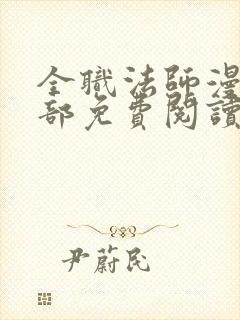 全職法師漫
部免費閱讀
尹蔚民